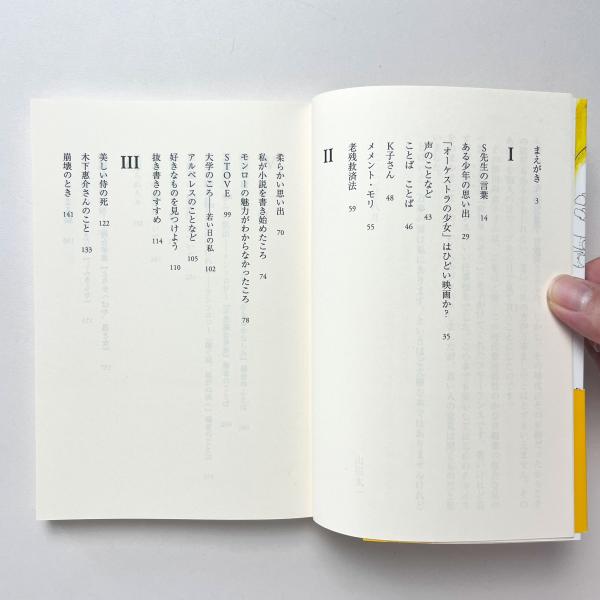 まえがき 3
I
S先生の言葉 14
ある少年の思い出 29
「オーケストラの少女」はひどい映画か? 35
声のことなど 43
ことば ことば 46
K子さん 48
メメント・モリ 55
老残救済法 59
II
柔らかい思い出 70
私が小説を書き始めたころ 74
モンローの魅力がわからなかったころ 78
STOVE 99
大学のころ——若い日の私 102
アルペレスのことなど 105
好きなものを見つけよう 110
抜き書きのすすめ 114
III
美しい侍の死 122
木下惠介さんのこと 133
崩壊のとき 141